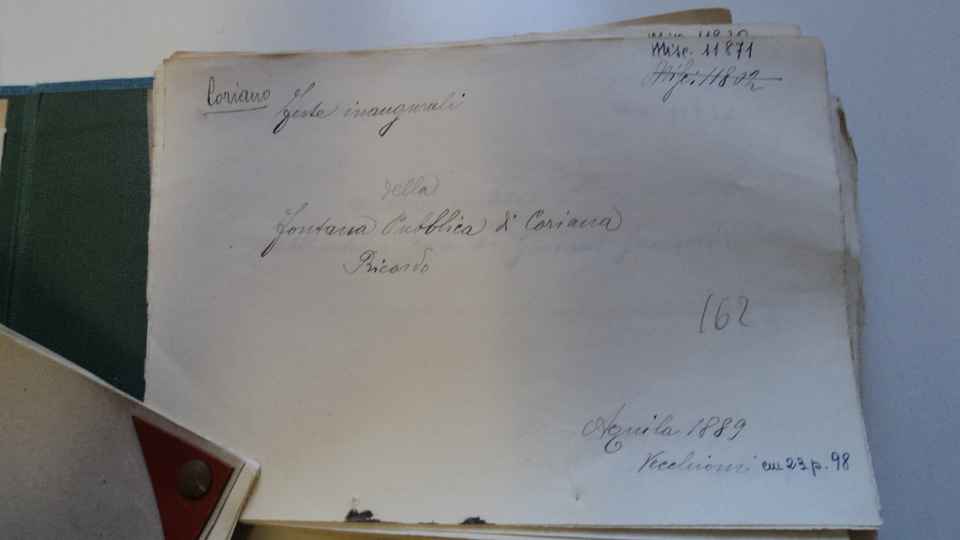 Misc. 11871
Misc. 11802
Coriano
Feste inaugurali
della
Fontana Pubblica di Coriana
Ricordo
162
Aquila 1889
Vecchioni cm 23 p. 98